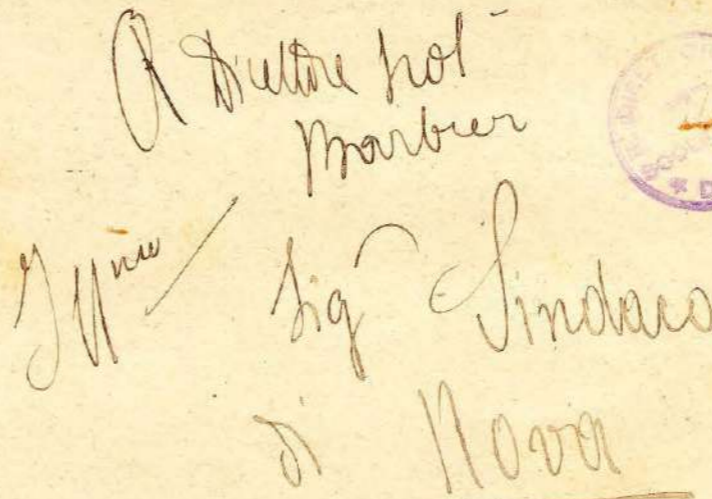 R Direttore Prof
Barbier
Ill<sup>mo</sup> Sig Sindaco
di Nova